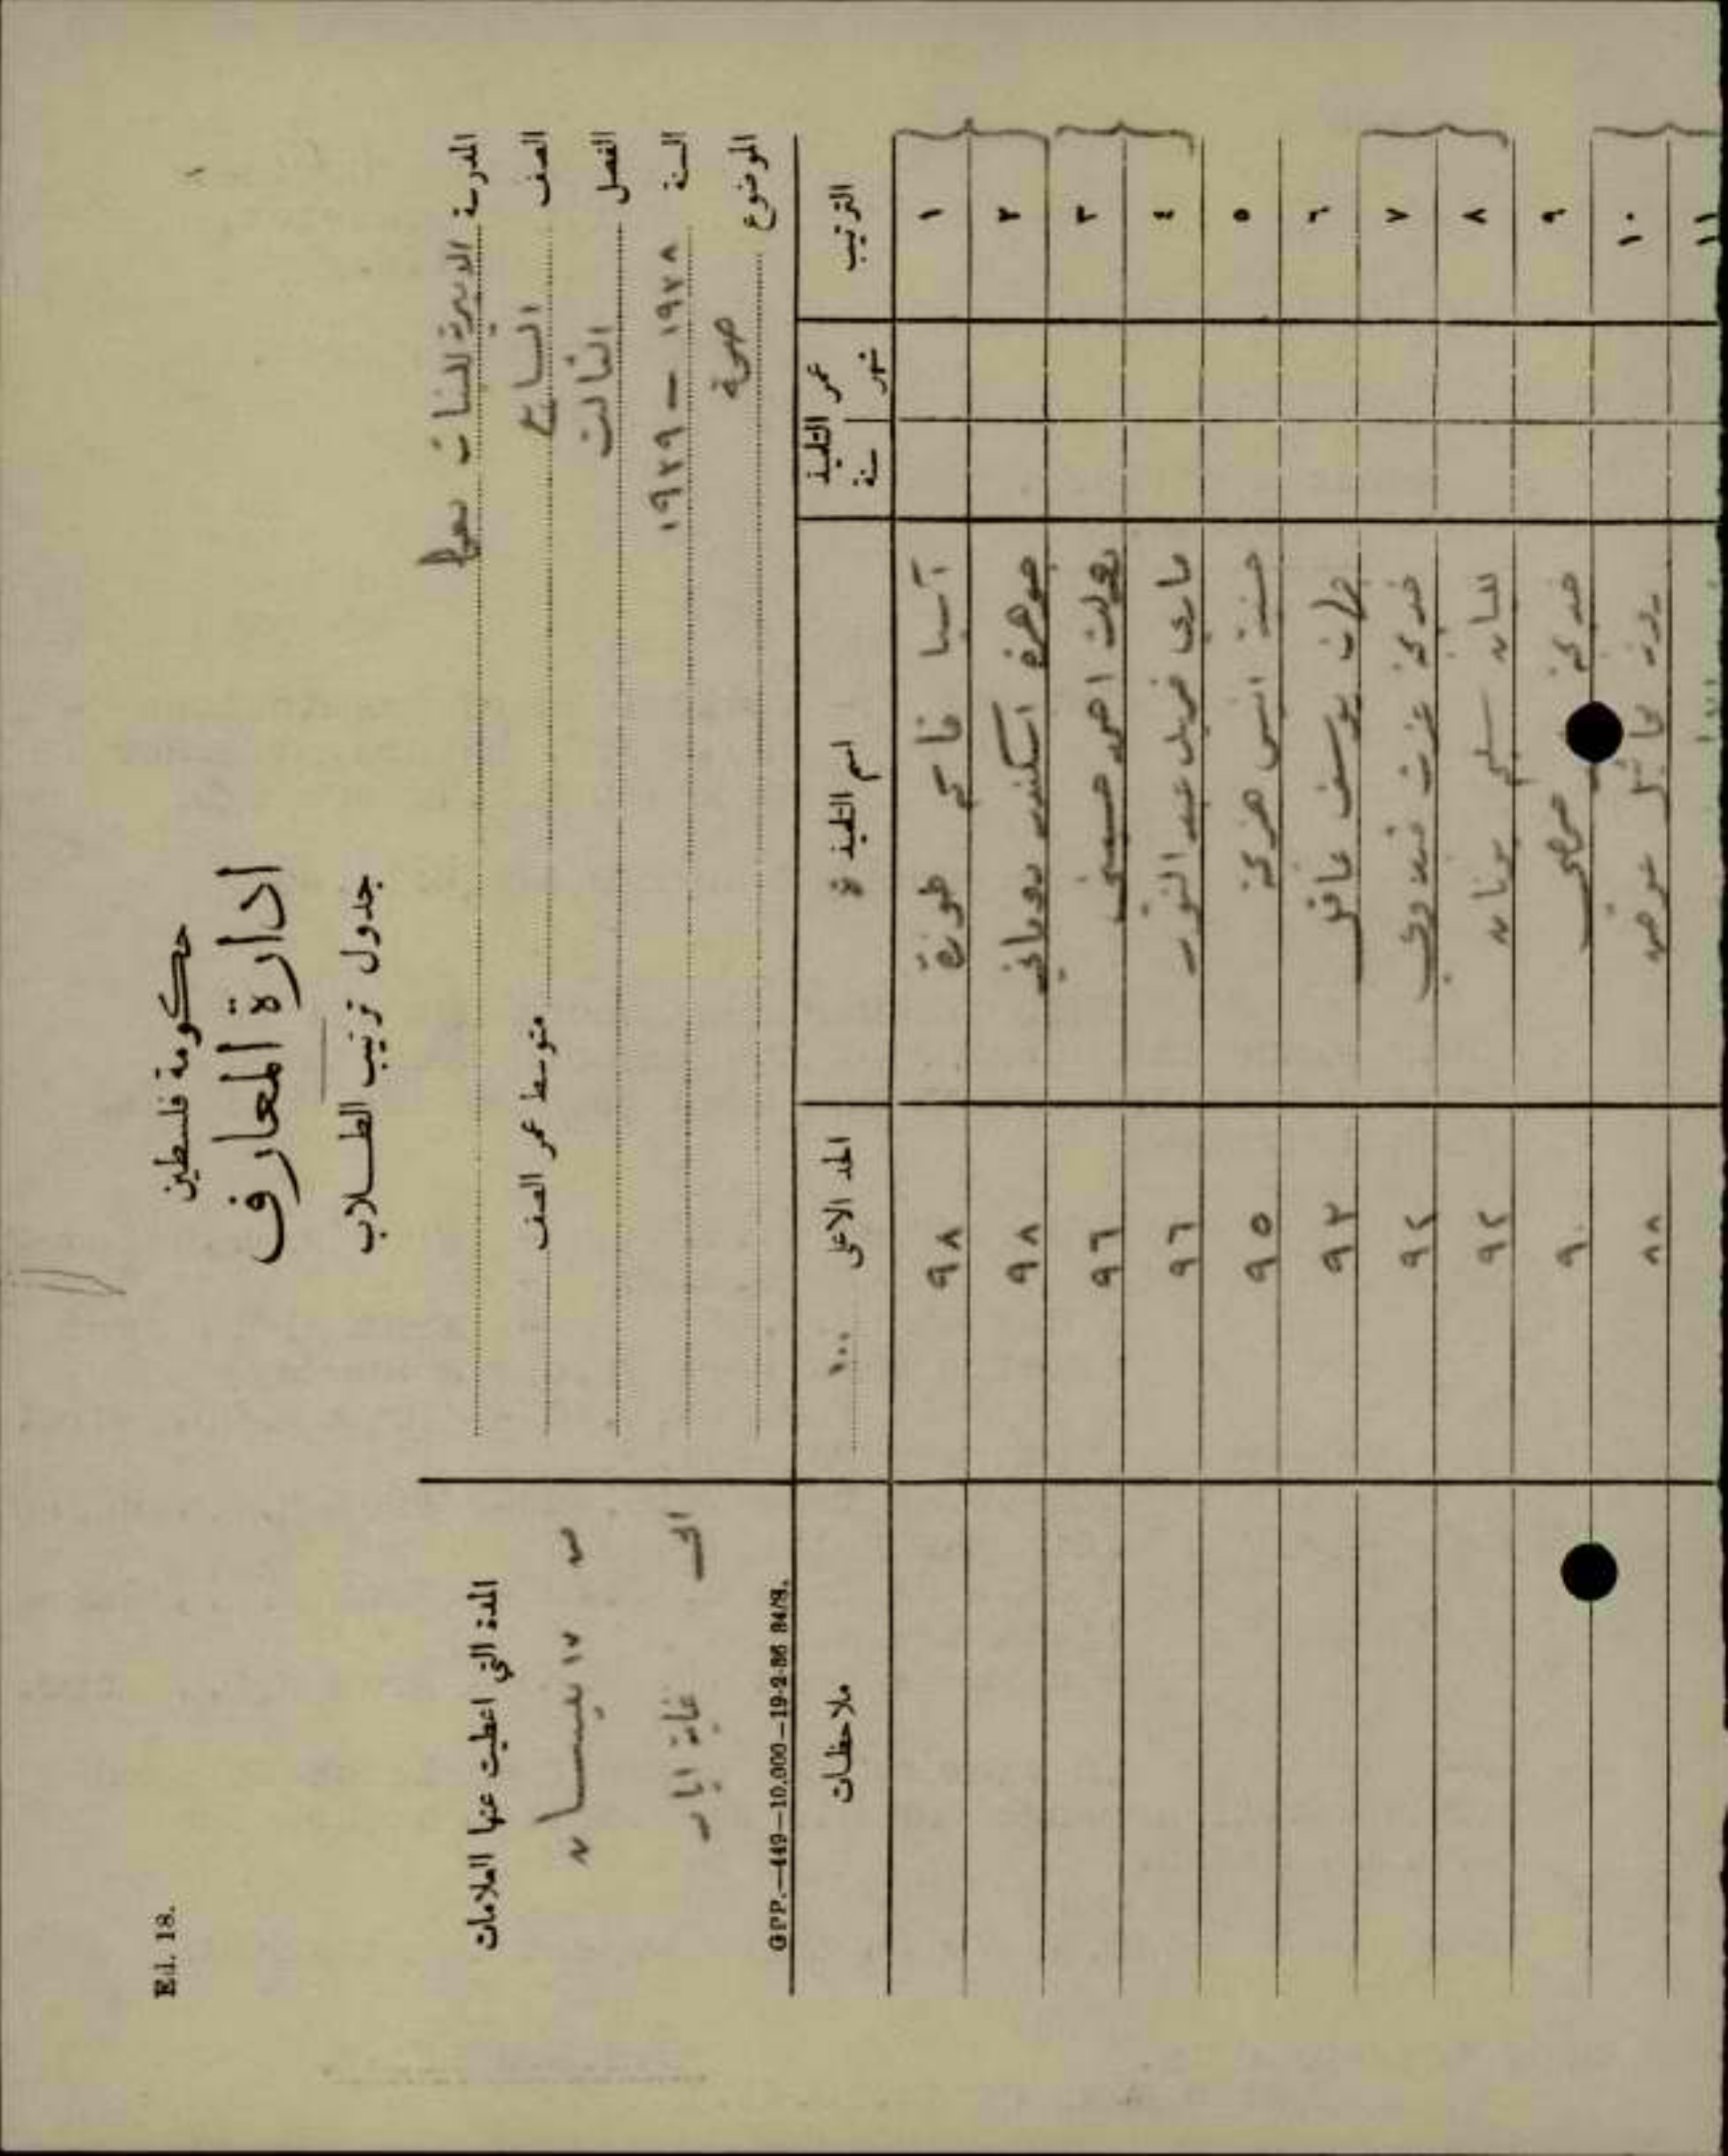 Ed. 18.
حكومة فلسطين
ادارة المعارف
جدول ترتيب الطلاب
المدرسة الاميرية للبنات بعكا
الصف السابع متوسط عمر الصف
الفصل الثالث
السنة ١٩٢٨ — ١٩٢٩
الموضوع صحة
المدة التي اعطيت عنها العلامات
من ١٧ نيسان
الى غاية ايار
GPP.—449—10.000—19-2-36 84/S.
الترتيب عمر التلميذ سنة شهر اسم التلميذ ة الحد الاعلى ١٠٠ ملاحظات
١ آسيا طوزة ٩٨
٢ جوهرة اسكندر روماني ٩٨
٣ احمد حسيني ٩٦
٤ ماري عبد النور ٩٦
٥ حسنة انس ٩٥
٦ يوسف عاقل ٩٣
٧ خديجة عزت ٩٢
٨ سليم ٩٢
٩ خديجة ٩٠
١٠ عوض ٨٨
١١